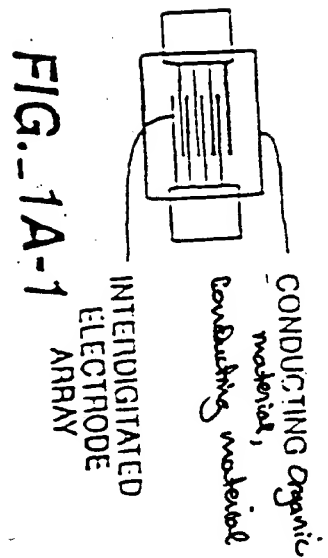 CONDUCTING Organic
material,
Conducting material
INTERDIGITATED
ELECTRODE
ARRAY
FIG._1A-1